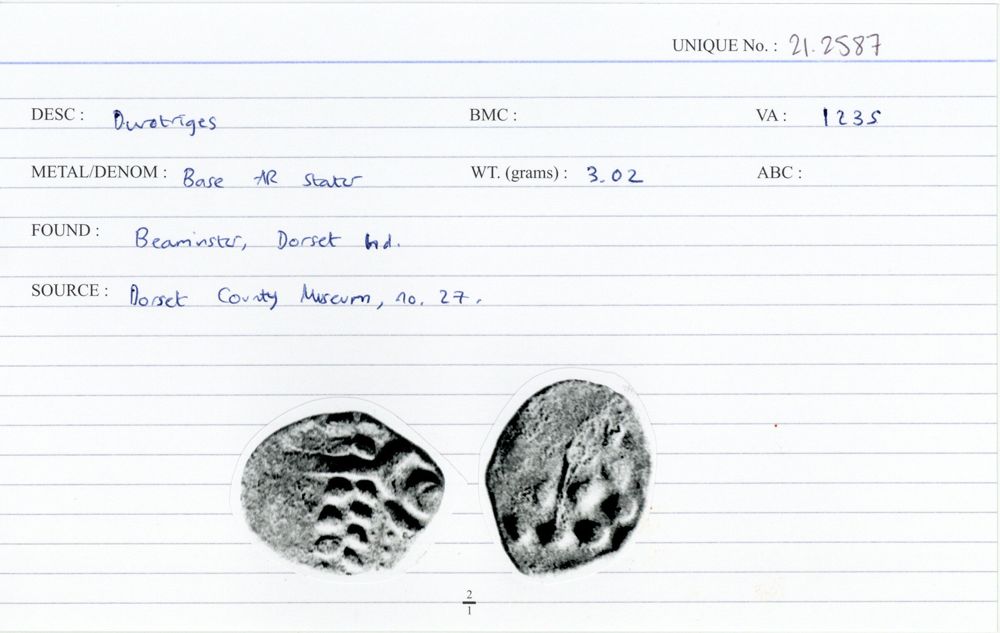 UNIQUE No. : 21.2587
DESC : Durotriges BMC : VA : 1235
METAL/DENOM : Base AR stater WT. (grams) : 3.02 ABC :
FOUND : Beaminster, Dorset hd.
SOURCE : Dorset County Museum, no. 27.
2
1